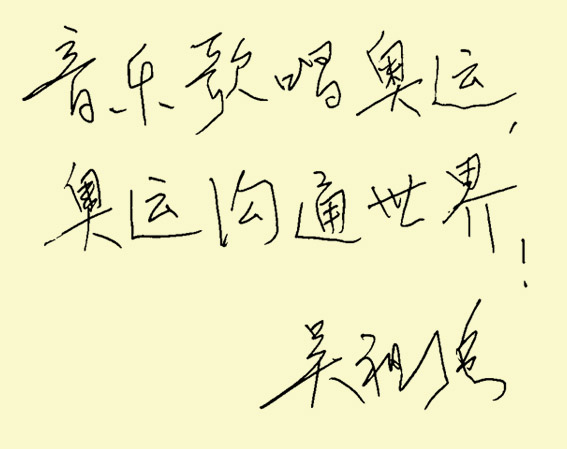 音乐歌唱奥运,
奥运沟通世界!
吴祖强